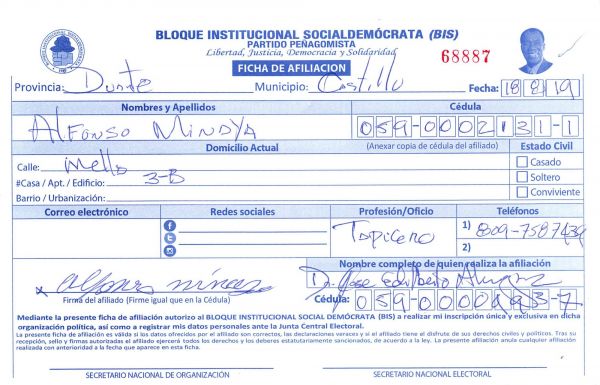 BLOQUE INSTITUCIONAL SOCIALDEMÓCRATA (BIS)
PARTIDO PEÑAGOMISTA
Libertad, Justicia, Democracia y Solidaridad
68887
FICHA DE AFILIACION
Provincia: Duarte Municipio: Castillo Fecha: 18 8 19
Nombres y Apellidos Cédula
Alfonso MINAYA 059-0002131-1
Domicilio Actual (Anexar copia de cédula del afiliado) Estado Civil
Calle: Mella Casado
#Casa / Apt. / Edificio: 3-B Soltero
Barrio / Urbanización: Conviviente
Correo electrónico Redes sociales Profesión/Oficio Teléfonos
Tapicero 1) 809-7587439
2)
Nombre completo de quien realiza la afiliación
x Alfonso minaya Dr. Jose Edilberto
Firma del afiliado (Firme igual que en la Cédula) Cédula: 059-0000193-7
Mediante la presente ficha de afiliación autorizo al BLOQUE INSTITUCIONAL SOCIAL DEMÓCRATA (BIS) a realizar mi inscripción única y exclusiva en dicha
organización política, así como a registrar mis datos personales ante la Junta Central Electoral.
La presente ficha de afiliación es válida si los datos ofrecidos por el afiliado son correctos, las declaraciones veraces y si el titular es el disfrute de sus derechos civiles y políticos. Tras su
recepción, sello y firmas autorizadas el afiliado ejercerá todos los derechos y los deberes estatutariamente sancionados, de acuerdo a la ley. La presente afiliación anula cualquier afiliación
realizada con anterioridad a la fecha que aparece en esta ficha.
SECRETARIO NACIONAL DE ORGANIZACIÓN SECRETARIO NACIONAL ELECTORAL